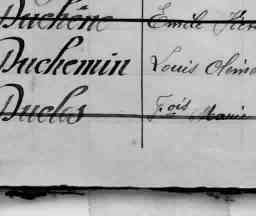 Duchêne Emile
Duchemin Louis
Duclos F.ois Marie